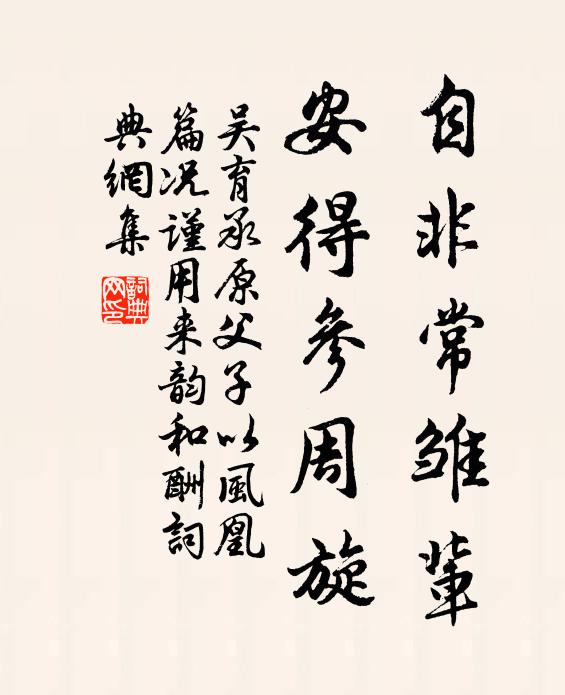 自非常雏輩
安得參周旋
吴育承原父子以風凰
篇况谨用来韵和酬詞
典網集
詞典网印